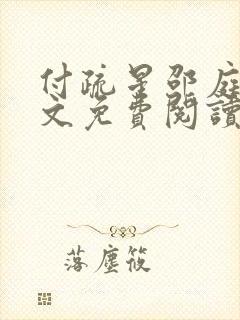 付疏星邵庭
文免費閱讀
落塵筱